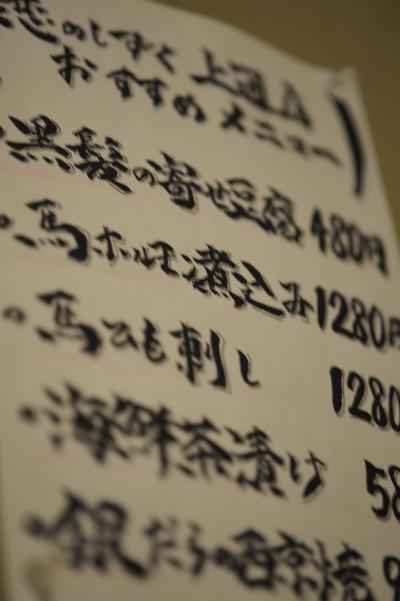 恋のしずく 上通店
おすすめメニュー
黒髪の寄せ豆腐 480円
馬ホルモン煮込み 1280円
馬ひも刺し 1280
海鮮茶漬け 58
銀だらの西京焼 9